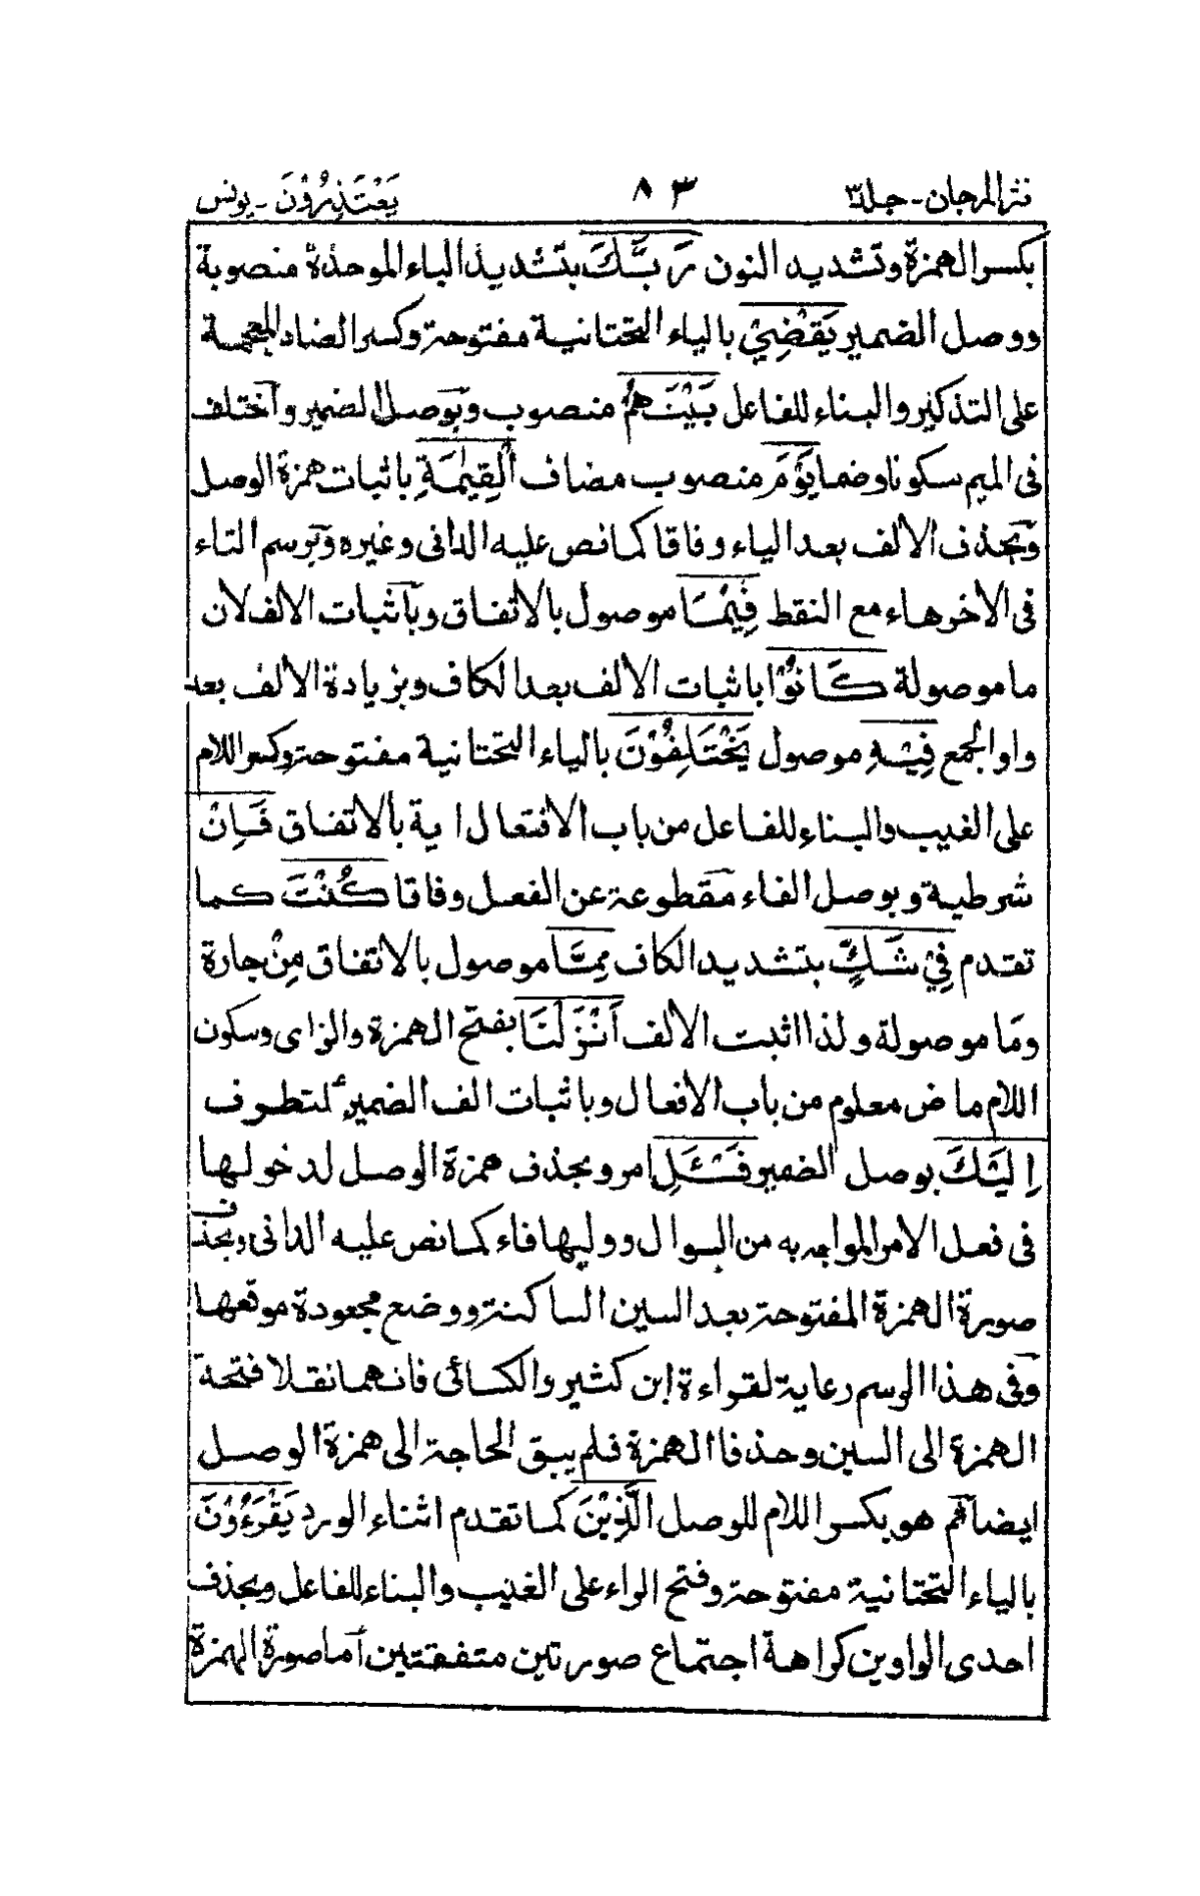 نثر المرجان - جلد ٣ ٨٣ يَعْتَذِرُوْنَ - يونس
بكسر الهمزة وتشديد النون رَبَّكَ بتشديد الباء الموحدة منصوبة
ووصل الضمير يَقْضِيْ بالياء التحتانية مفتوحة وكسر الضاد المعجمة
على التذكير والبناء للفاعل بَيْنَهُمْ منصوب وبوصل الضمير واختلف
فى الميم سكونا وضما يَوْمَ منصوب مضاف الْقِيٰمَةِ باثبات همزة الوصل
وبحذف الالف بعد الياء وفاقا كما نص عليه الدانى وغيره وبرسم التاء
فى الاخر هاء مع النقط فِيْمَا موصول بالاتفاق وباثبات الالف لان
ما موصولة كَانُوْا باثبات الالف بعد الكاف وبزيادة الالف بعد
واو الجمع فِيْهِ موصول يَخْتَلِفُوْنَ بالياء التحتانية مفتوحة وكسر اللام
على الغيب والبناء للفاعل من باب الافتعال اية بالاتفاق فَاِنْ
شرطية وبوصل الفاء مقطوعة عن الفعل وفاقا كُنْتَ كما
تقدم فِيْ شَكٍّ بتشديد الكاف مِمَّا موصول بالاتفاق مِنْ جارة
وما موصولة ولذا اثبت الالف اَنْزَلْنَا بفتح الهمزة والزاى وسكون
اللام ماض معلوم من باب الافعال وباثبات الف الضمير للتطرف
اِلَيْكَ بوصل الضمير فَسْـَٔلِ امر وبحذف همزة الوصل لدخولها
فى فعل الامر المواجه به من السوال ووليها فاء كما نص عليه الدانى وبحذف
صورة الهمزة المفتوحة بعد السين الساكنة ووضع مجعودة موقعها
وفى هذا الرسم رعاية لقراءة ابن كثير والكسائى فانهما نقلا فتحة
الهمزة الى السين وحذفا الهمزة فلم يبق الحاجة الى همزة الوصل
ايضا ثم هو بكسر اللام للوصل الَّذِيْنَ كما تقدم اثناء الورد يَقْرَءُوْنَ
بالياء التحتانية مفتوحة وفتح الراء على الغيب والبناء للفاعل وبحذف
احدى الواوين كراهة اجتماع صورتين متفقتين اما صورة الهمزة